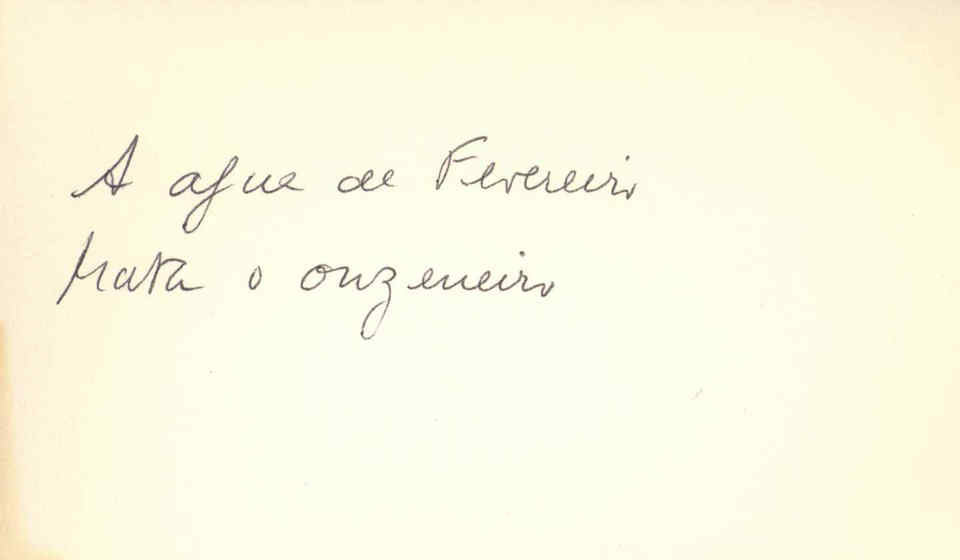 A agua de Fevereiro
Mata o onzeneiro